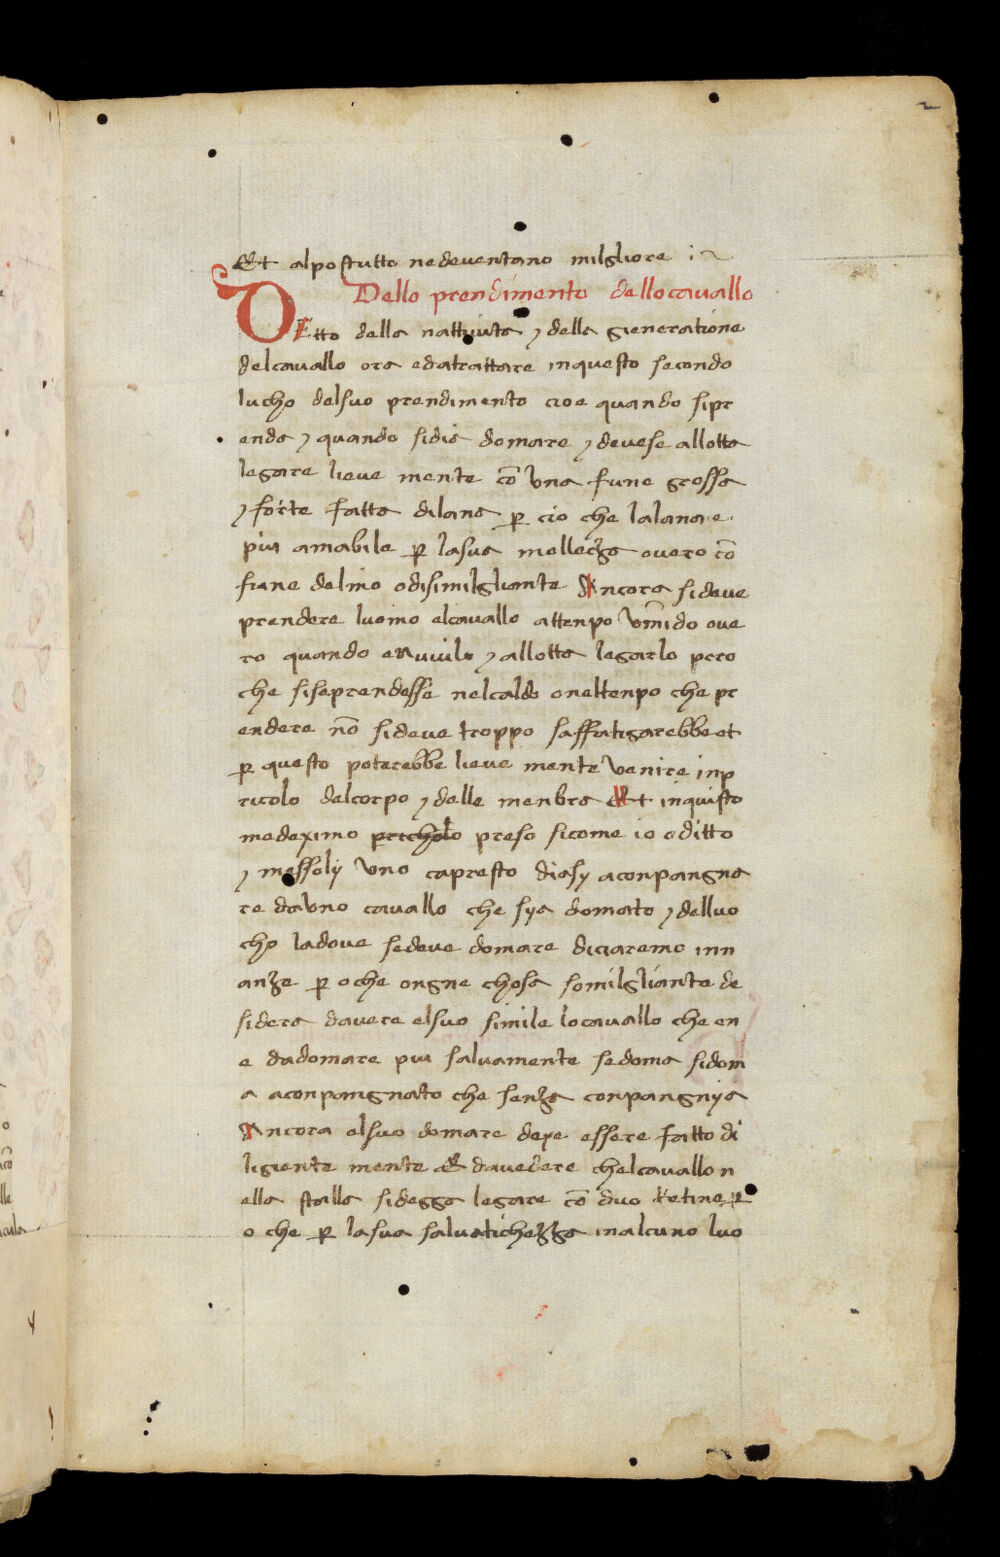 Et alpostutto nedeventano milgliore
Dello prendimento dello cavallo
DEtto della nattivita ⁊ della gieneratione
delcavallo ora edatrattare inquesto secondo
lucho delsuo prendimento cioe quando sipr
enda ⁊ quando sidia domare ⁊ devese allotta
legare lieve mente cō una fune grossa
⁊ forte fatta dilana ꝑ cio che lalana e
piu amabile ꝑ lasua mollecza overo cō
fune delino odisimilgliante Ancora sideve
prendere luomo elcavallo attenpo um̄ido ove
ro quando e nuvilo ⁊ allotta legarlo pero
che siseprendesse nelcaldo oneltenpo che pr
endere nō sideve troppo saffatigarebbe et
ꝑ questo potarebbe lieve mente venire inꝑ
ricolo delcorpo ⁊ delle menbra Et inquisto
medeximo preso sicome io oditto
⁊ messoly uno capresto diasy aconpangna
re dauno cavallo che sya domato ⁊ delluo
cho ladove sedeve domare diciaremo inn
anze ꝑ oche ongne chosa somilgliante de
sidera davere elsuo simile locavallo che en
e dadomare piu salvamente sedoma sidom
a aconpangnato che senza conpangnya
Ancora elsuo domare deve essere fatto di
ligiente mente Et davedere chelcavallo n
ella stalla sidegga legare cō duo retine ꝑ
o che ꝑ lasua salvatichezza inalcuno luo